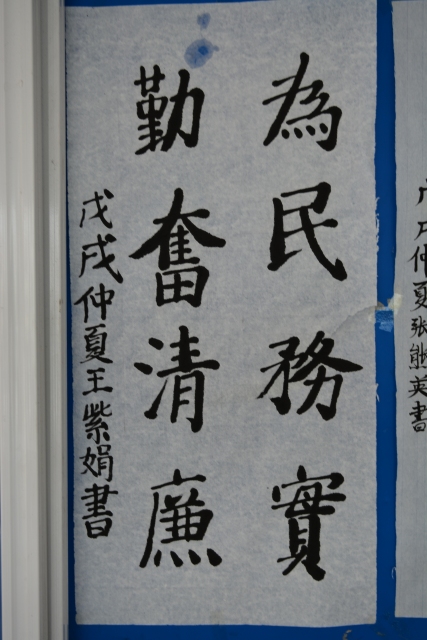 為民務實
勤奮清廉
戊戌仲夏王紫娟書
戊戌仲夏张熊英書